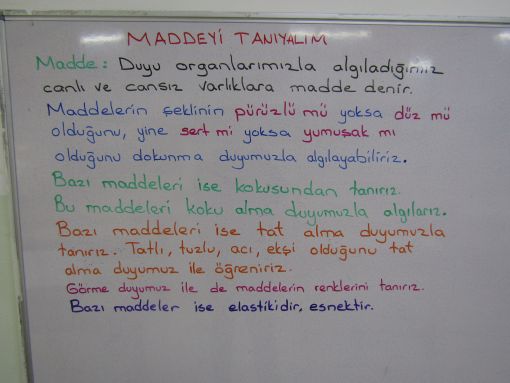 MADDEYİ TANIYALIM
Madde: Duyu organlarımızla algıladığımız
canlı ve cansız varlıklara madde denir.
Maddelerin şeklinin pürüzlü mü yoksa düz mü
olduğunu, yine sert mi yoksa yumuşak mı
olduğunu dokunma duyumuzla algılayabiliriz.
Bazı maddeleri ise kokusundan tanırız.
Bu maddeleri koku alma duyumuzla algılarız.
Bazı maddeleri ise tat alma duyumuzla
tanırız. Tatlı, tuzlu, acı, ekşi olduğunu tat
alma duyumuz ile öğreniriz.
Görme duyumuz ile de maddelerin renklerini tanırız.
Bazı maddeler ise elastikidir, esnektir.